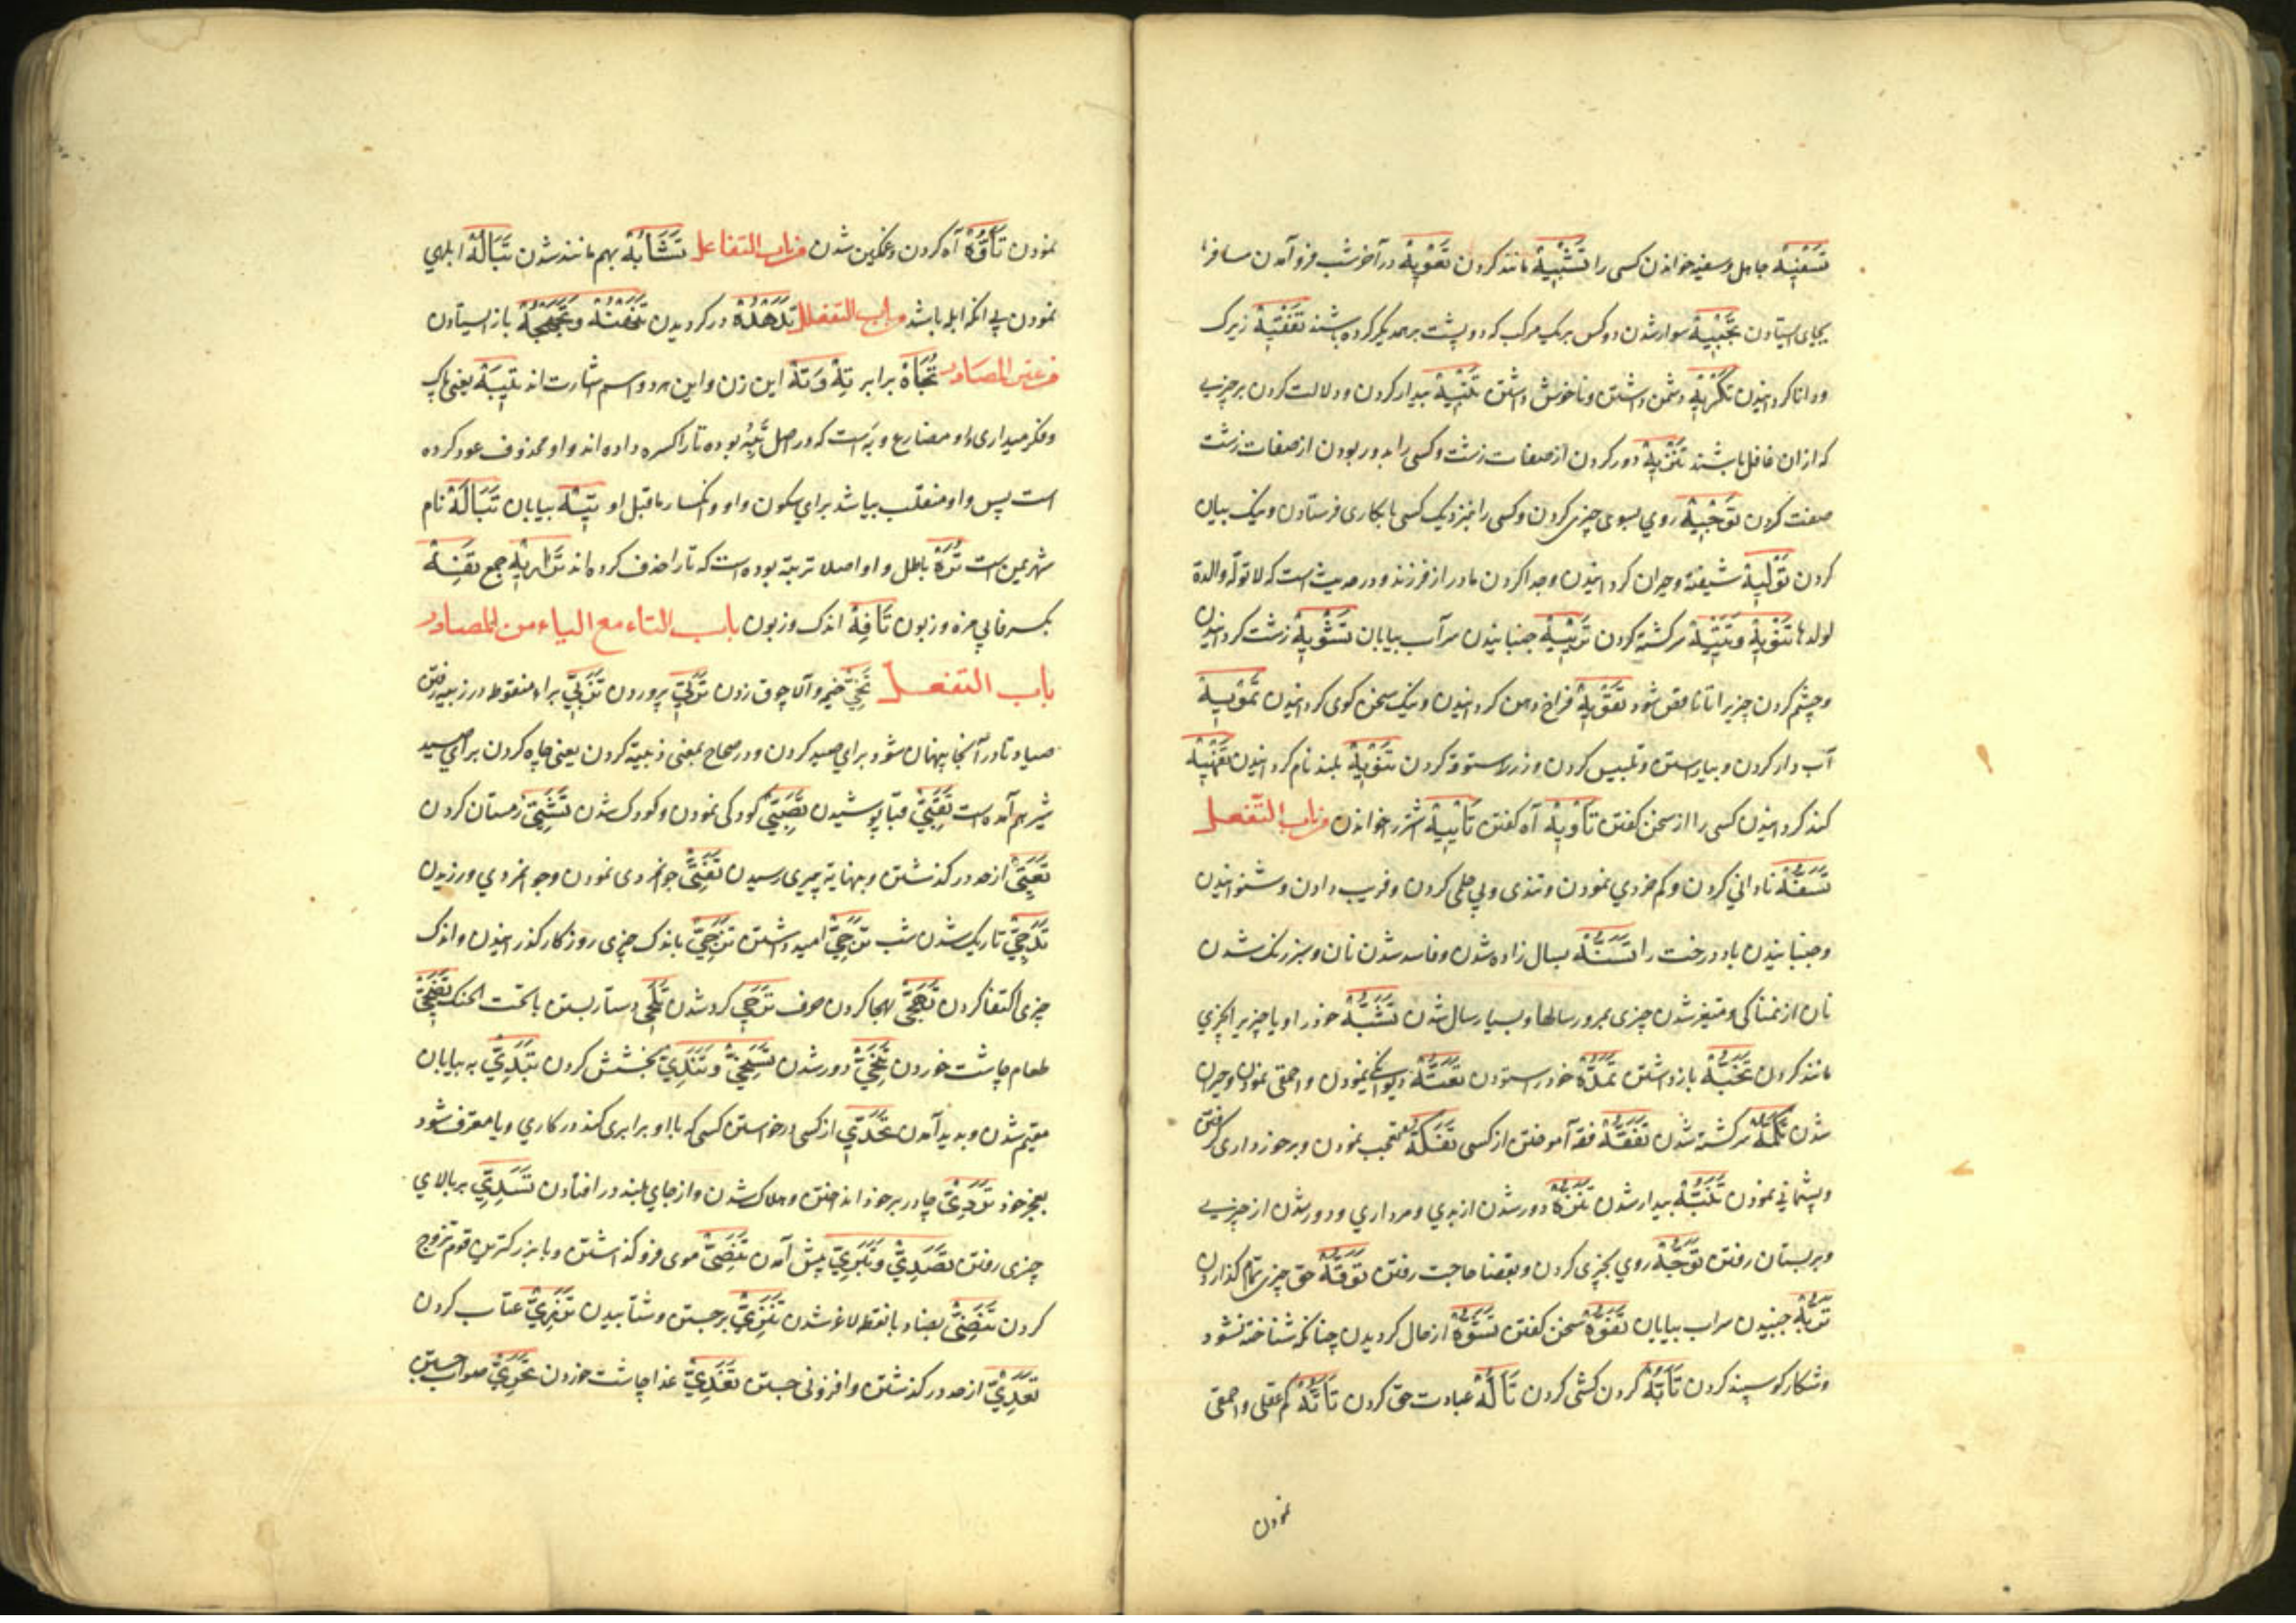 تَسْفِيْهْ جاهل و سفیه خواندن کسی را تَشْبِيْهْ مانند کردن تَعْوِيْهْ در آخر شب فرو آمدن مسافر را
بجای ایستادن تَجْبِيْهْ سوار شدن دو کس بر یک مرکب که دو پشت بر همدیگر کرده باشند تَفْقِيْهْ زیرک
و دانا کردانیدن تَكْرِيْهْ دشمن داشتن و ناخوش داشتن تَنْبِيْهْ بیدار کردن و دلالت کردن بر چیزی
که ازان غافل باشند تَنْزِيْهْ دور کردن از صفات زشت و کسی را بدور بودن از صفات زشت
صفت کردن تَوْجِيْهْ روی بسوی چیزی کردن و کسی را بنزدیک کسی بکاری فرستادن و نیک بیان
کردن تَوْلِيْهْ شیفته و حیران کردانیدن و جدا کردن مادر از فرزند و در حدیث است که لا توله والدة
لولدها تَتْوِيْهْ و تَتْيِيْهْ سرکشته کردن تَرْيِيْهْ جنبانیدن سرآب بیابان تَشْوِيْهْ زشت کردانیدن
و چشم کردن چیزیرا تا ناقص شود تَفْوِيْهْ فراخ دهن کردانیدن و نیک سخن کوی کردانیدن تَمْوِيْهْ
آب دار کردن و بیاراستن و تلبیس کردن و زراندود کردن تَنْوِيْهْ بلند نام کردانیدن تَفْهِيْهْ
کند کردانیدن کسی را از سخن کفتن تَأْوِيْهْ آه کفتن تَأْيِيْهْ اشتر را خواندن من باب التفعل
تَسَفُّهْ نادانی کردن و کم خردی نمودن و تندی و بی حلمی کردن و فریب دادن و شنوانیدن
و جنبانیدن باد درخت را تَسَنُّهْ بسال زاده شدن و فاسد شدن نان و سبز رنک شدن
نان از نمناکی و متغیر شدن چیزی بمرور سالها و بسیار سال شدن تَشَبُّهْ خود را و یا چیزیرا بچیزی
مانند کردن تَجَبُّهْ باز داشتن تَمَدُّهْ خود را ستودن تَعَتُّهْ دیوانکی نمودن و احمقی نمودن و حیران
شدن تَكَمُّهْ سرکشته شدن تَفَقُّهْ فقه آموختن از کسی تَفَكُّهْ تعجب نمودن و برخورداری کرفتن
و پشیمانی نمودن تَنَبُّهْ بیدار شدن تَنَزُّهْ دور شدن از بدی و مرداری و دور شدن از چیزی
و ببستان رفتن تَوَجُّهْ روی بچیزی کردن و بقضا حاجت رفتن
تَرَيُّهْ جنبیدن سراب بیابان تَفَوُّهْ سخن کفتن تَشَوُّهْ از حال کردیدن چنانکه شناخته نشود
و شکار کوسپند کردن تَأَبُّهْ کردن کشی کردن تَأَلُّهْ عبادت حق کردن تَأَتُّهْ کم عقلی و احمقی
نمودن
نمودن تَأَوُّهْ آه کردن و غمکین شدن من باب التفاعل تَشَابُهْ بهم مانند شدن تَبَالُهْ ابلهی
نمودن بی آنکه ابله باشد من باب التفعلل تَدَهْدُهْ در کردیدن تَنَهْنُهْ و تَجَهْجُهْ باز ایستادن
من غیر المصادر تُجَاهْ برابر تِهْ وَ تَهْ این زن و این هر دو اسم اشارت اند
و فکر میداری او مضارع و به است که در اصل بوده تا را کسره داده اند و او محذوف عود کرده
است پس واو منقلب بیا شد برای سکون واو و انکسار ماقبل او تِيْهْ بیابان تَبَالَهْ نام
شهر یمن است تُرَّهْ باطل و او اصلا ترهة بوده است که تا را حذف کرده اند تَرَارِيْهْ جمع تَفِهْ
بکسر فا بی مزه و زبون تَافِهْ اندک و زبون باب التاء مع الیاء من المصادر
باب التفعل تَخَيِّيْ خیمه و آلاچوق زدن تَرَبِّيْ پروردن تَزَبِّيْ براء منقوط در زبیه رفتن
صیاد تا در آنجا پنهان شود برای صید کردن و در صحاح بمعنی زبیة کردن یعنی چاه کردن برای صید
شیر هم آمده است تَقَبِّيْ قبا پوشیدن تَصَبِّيْ کودکی نمودن و کودک شدن تَشَتِّيْ زمستان کردن
تَعَتِّيْ از حد در کذشتن و بنهایة پیری رسیدن تَفَتِّيْ جوانمردی نمودن و جوانمردی ورزیدن
تَدَجِّيْ تاریک شدن شب تَرَجِّيْ امید داشتن تَزَجِّيْ باندک چیزی روزکار کذرانیدن و اندک
چیزی اکتفا کردن تَهَجِّيْ هجا کردن حروف تَرَحِّيْ کرد شدن تَلَحِّيْ دستار بستن با تحت الحنک تَضَحِّيْ
طعام چاشت خوردن تَنَحِّيْ دور شدن تَسَخِّيْ و تَنَدِّيْ بخشش کردن تَبَدِّيْ به بیابان
مقیم شدن و بدید آمدن تَحَدِّيْ از کسی درخواستن کسی که با او برابری کند در کاری و یا معترف شود
بعجز خود تَرَدِّيْ چادر بر خود انداختن و هلاک شدن و از جای بلند در افتادن تَسَدِّيْ بر بالای
چیزی رفتن تَصَدِّيْ وَ تَبَرِّيْ پیش آمدن تَنَصِّيْ موی فرو کذاشتن و با بزرکترین قوم تزوج
کردن تَنَضِّيْ بضاد با نقطه لاغر شدن تَنَزِّيْ برجستن و شتابیدن تَزَرِّيْ عتاب کردن
تَعَدِّيْ از حد در کذشتن و افزونی جستن تَغَدِّيْ غذا چاشت خوردن تَحَرِّيْ صواب جستن